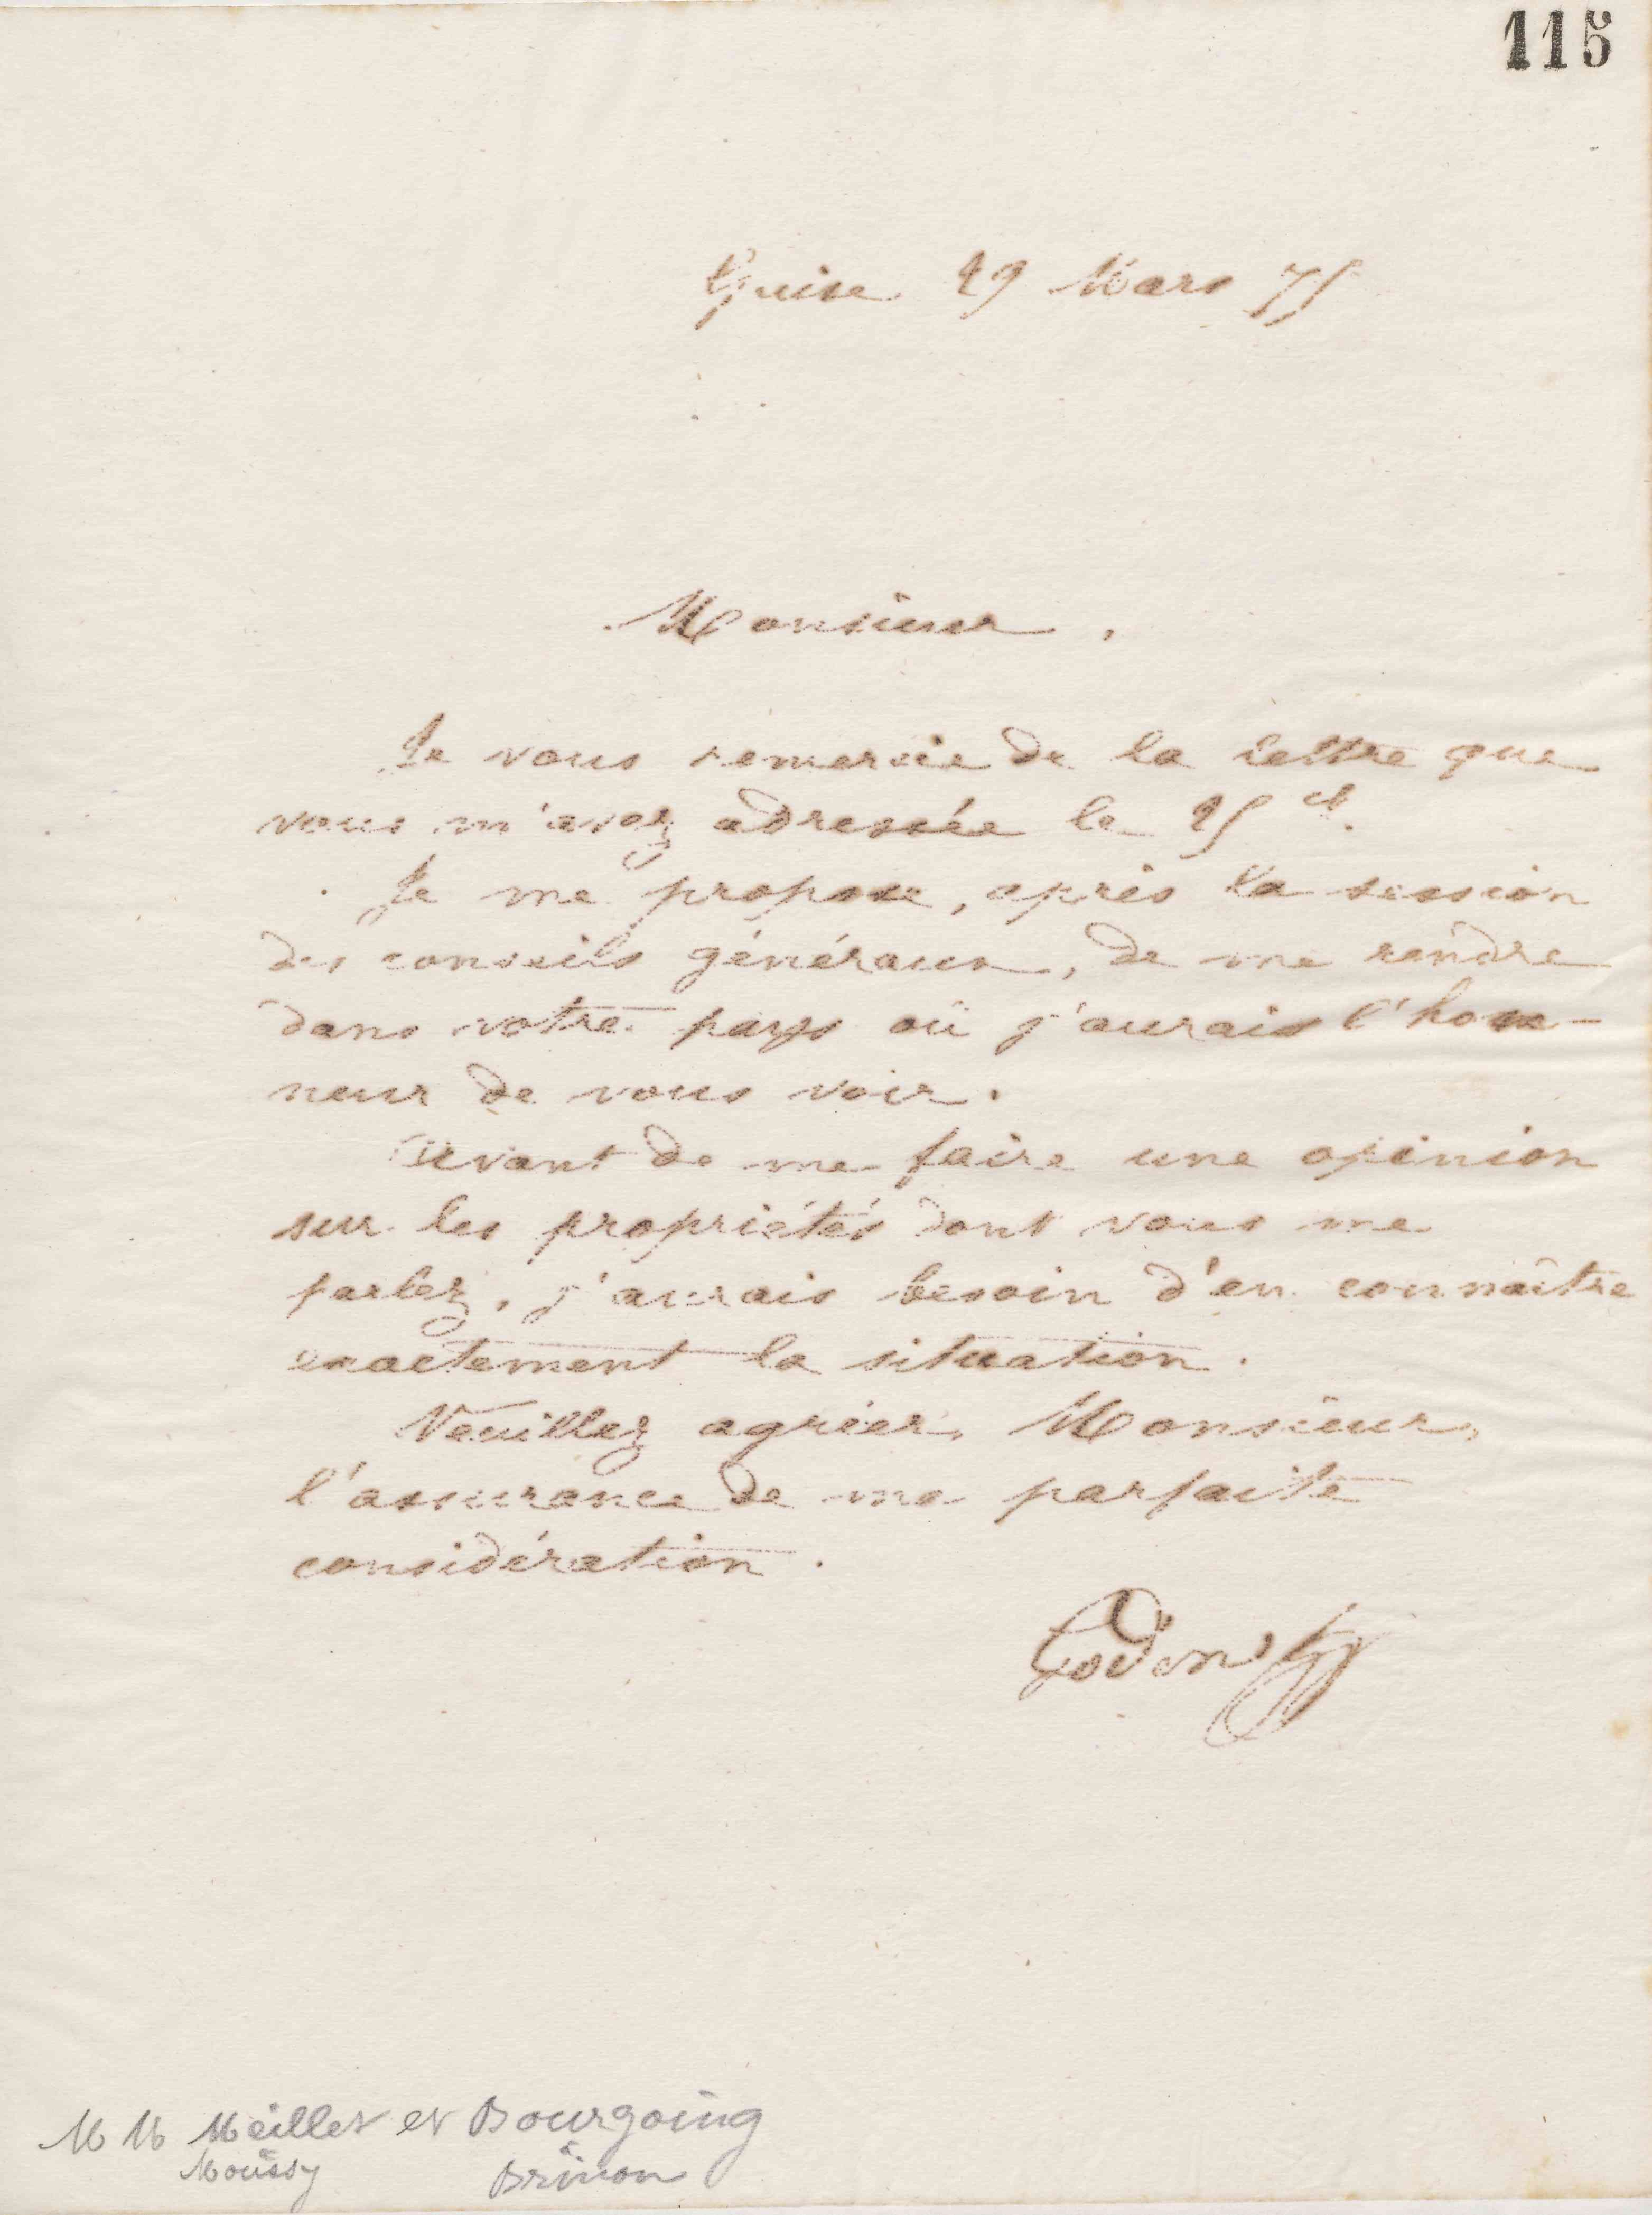 115
Guise 29 Mars 75
Monsieur,
Je vous remercie de la lettre que
vous m'avez adressée le 25 ct.
Je me propose, après la session
des conseils généraux, de me rendre
dans votre pays où j'aurais l'hon-
neur de vous voir.
Avant de me faire une opinion
sur les propriétés dont vous me
parlez, j'aurais besoin d'en connaître
exactement la situation.
Veuillez agréer, Monsieur,
l'assurance de ma parfaite
considération.
Godin
MM Meillet et Bourgoing
Moussy Brinon